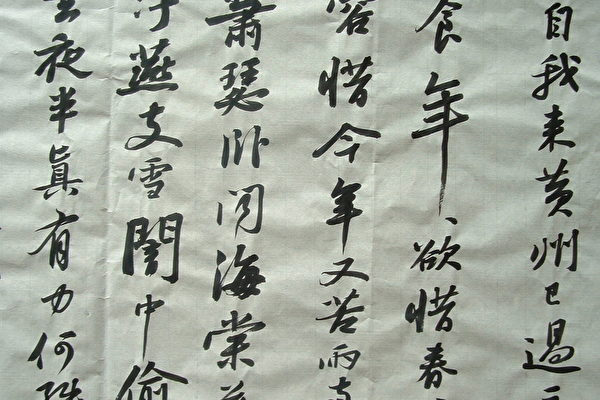 自我来黄州已過
食年、欲惜春
容惜今年又苦雨
蕭瑟卧闻海棠
燕支雪闇中偷
夜半真有力何殊